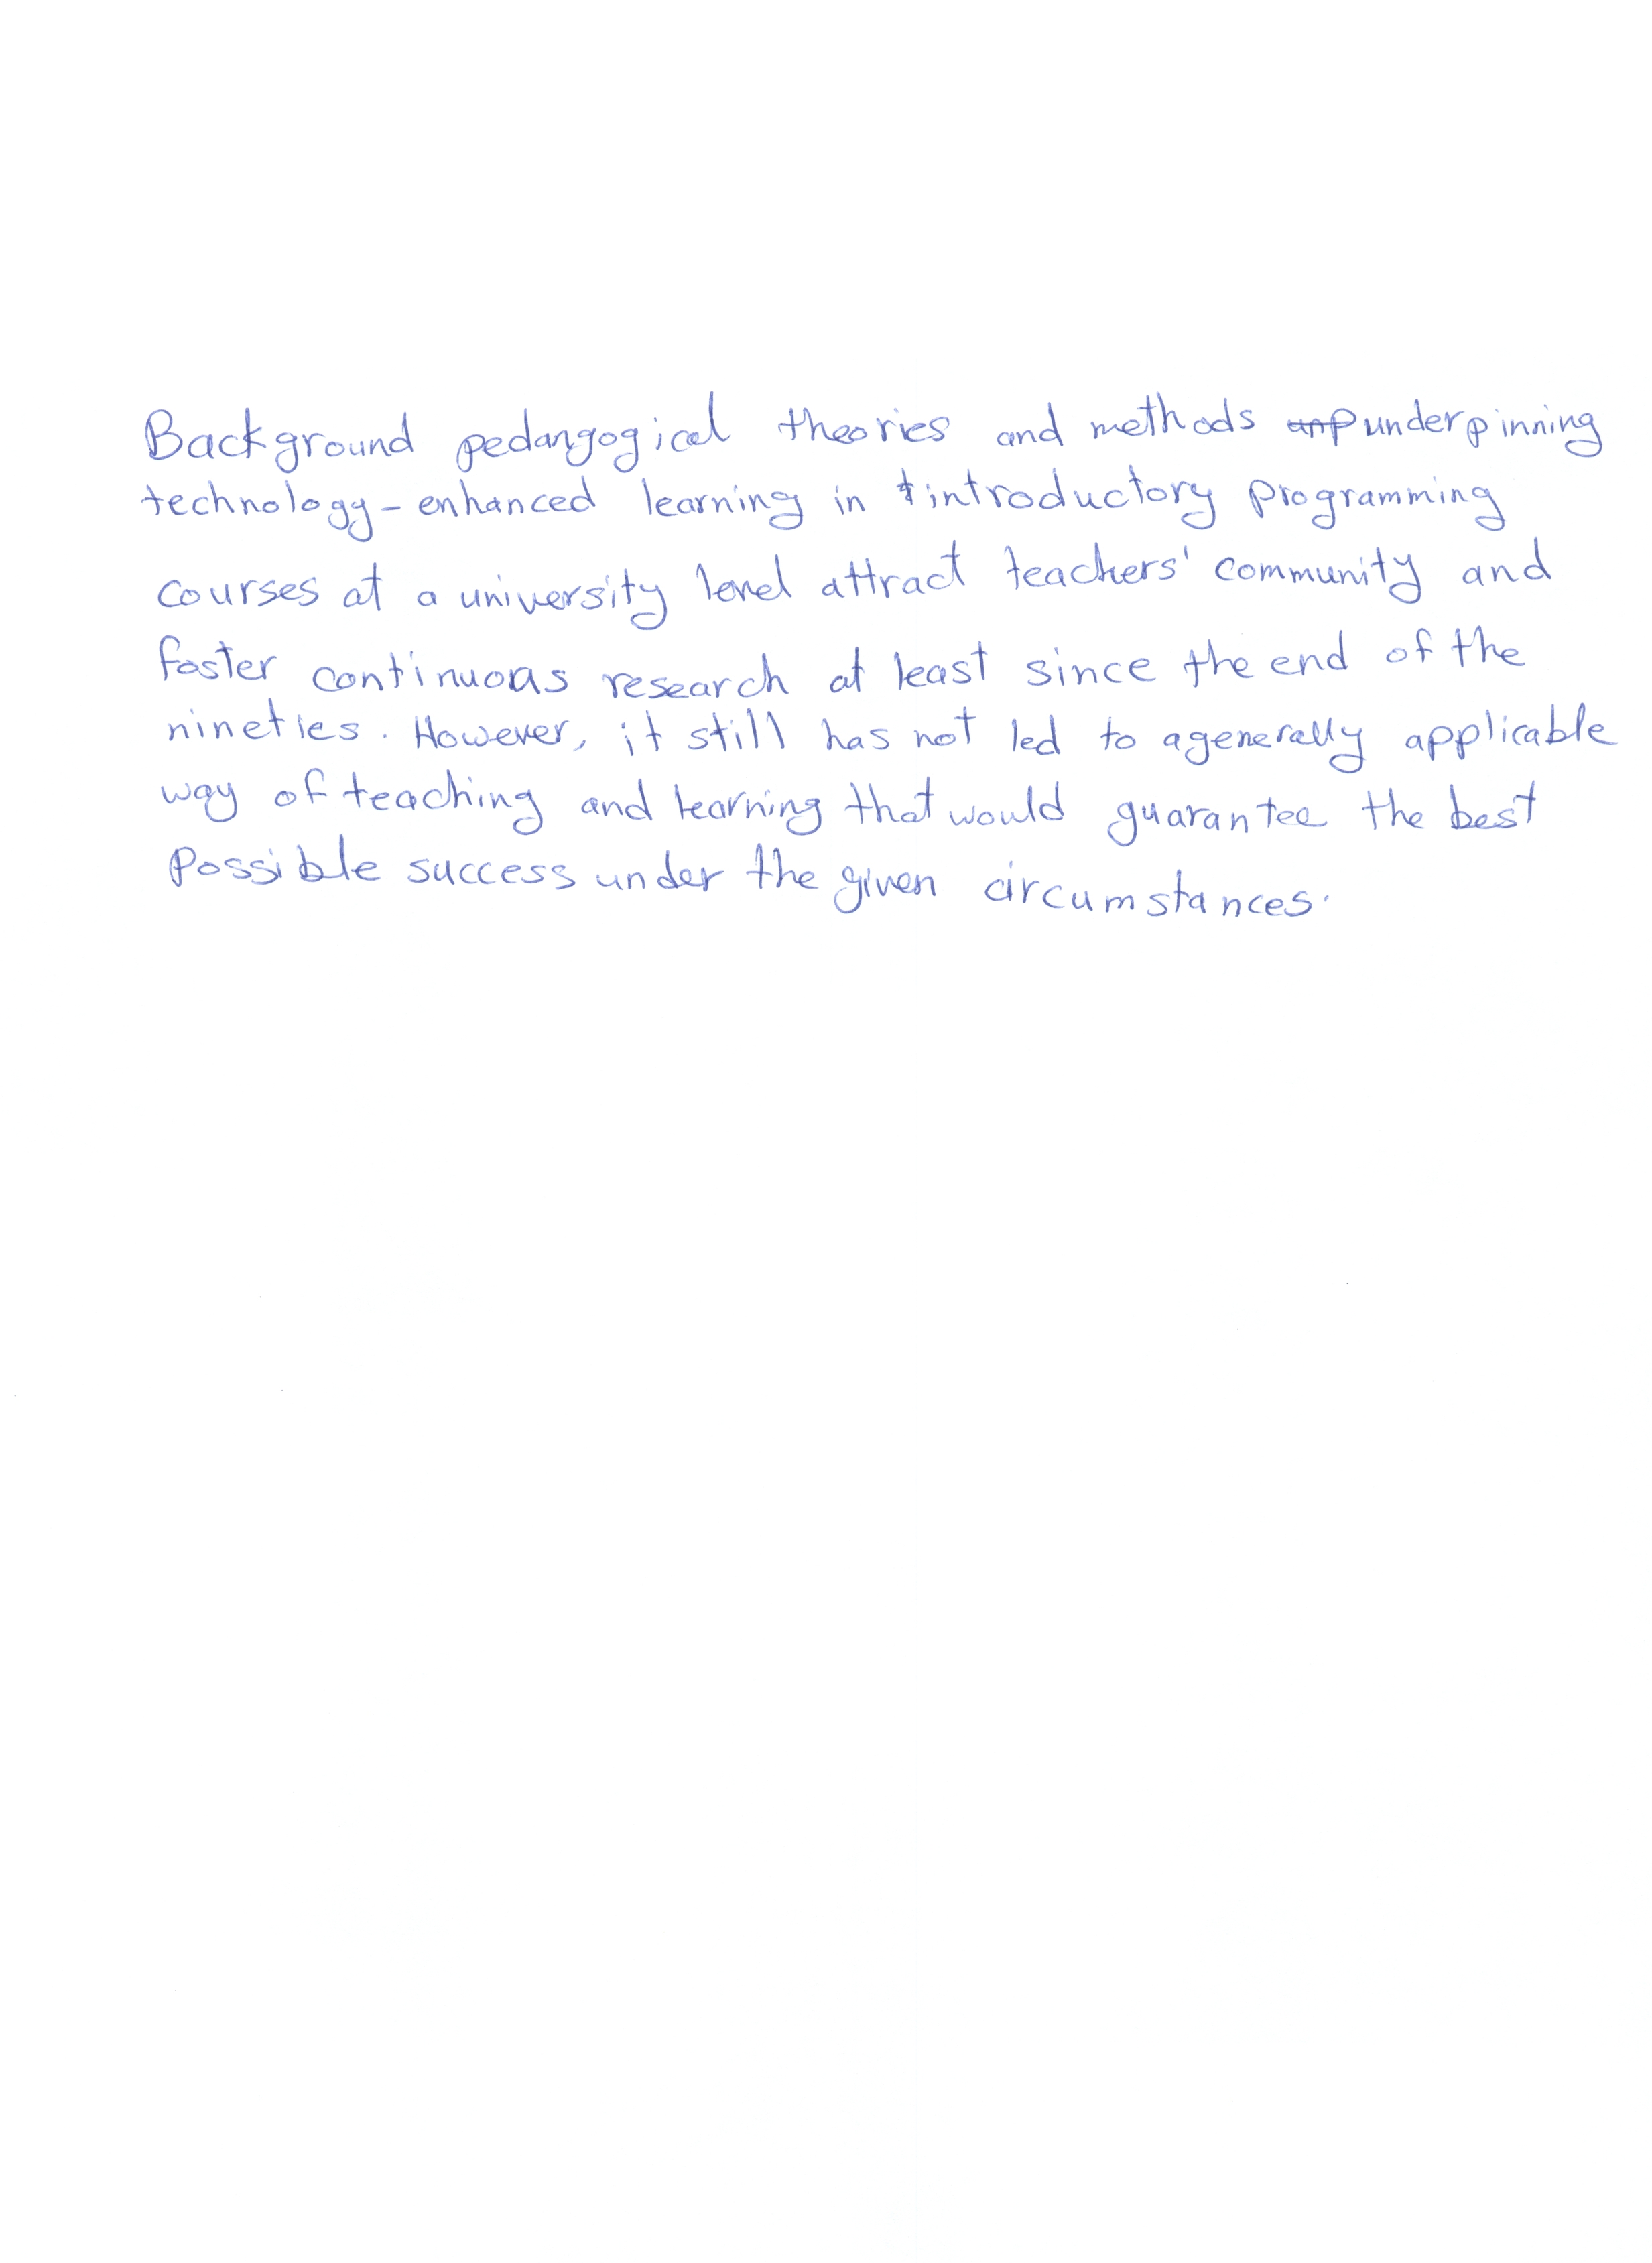 Background pedangogical theories and methods underpinning
technology-enhanced learning in introductory programming
courses at a university level attract teachers' community and
foster continuous research at least since the end of the
nineties. However, it still has not led to a generally applicable
way of teaching and learning that would guarantee the best
possible success under the given circumstances.